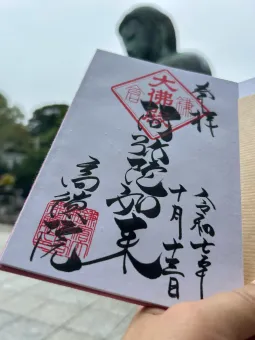 奉拝
令和七年
十月
鎌倉
大佛
阿弥陀如来
高徳院